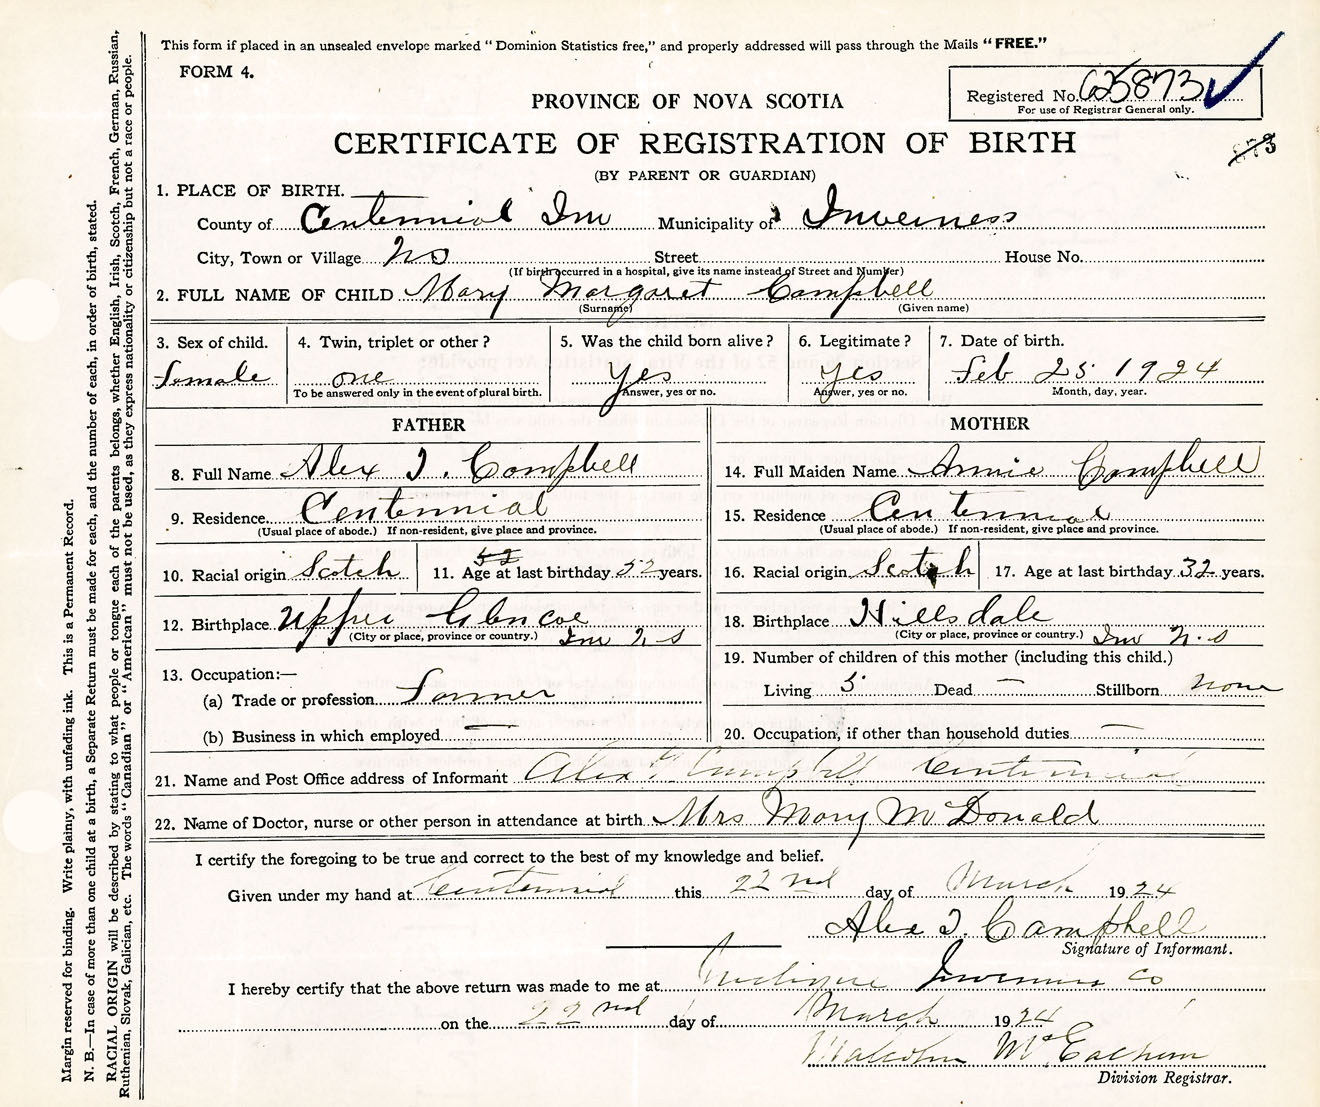 This form if placed in an unsealed envelope marked "Dominion Statistics free," and properly addressed will pass through the Mails "FREE."
FORM 4.
Registered No. 625873
For use of Registrar General only.
873
PROVINCE OF NOVA SCOTIA
CERTIFICATE OF REGISTRATION OF BIRTH
(BY PARENT OR GUARDIAN)
1. PLACE OF BIRTH.
County of Centennial Inv Municipality of Inverness
City, Town or Village NS Street House No.
(If birth occurred in a hospital, give its name instead of Street and Number)
2. FULL NAME OF CHILD Mary Margaret Campbell
(Surname) (Given name)
3. Sex of child. 4. Twin, triplet or other? 5. Was the child born alive? 6. Legitimate? 7. Date of birth.
female one yes yes Feb 25 1924
To be answered only in the event of plural birth. Answer, yes or no. Answer, yes or no. Month, day, year.
FATHER MOTHER
8. Full Name Alex J. Campbell 14. Full Maiden Name Annie Campbell
9. Residence Centennial 15. Residence Centennial
(Usual place of abode.) If non-resident, give place and province. (Usual place of abode.) If non-resident, give place and province.
52
10. Racial origin Scotch 11. Age at last birthday 52 years. 16. Racial origin Scotch 17. Age at last birthday 32 years.
12. Birthplace Upper Glencoe 18. Birthplace Hillsdale
(City or place, province or country.) Inv N S (City or place, province or country.) Inv N.S
19. Number of children of this mother (including this child.)
13. Occupation:—
(a) Trade or profession Farmer Living 5 Dead — Stillborn none
(b) Business in which employed — 20. Occupation, if other than household duties —
21. Name and Post Office address of Informant Alex J Campbell Centennial
22. Name of Doctor, nurse or other person in attendance at birth Mrs Mary McDonald
I certify the foregoing to be true and correct to the best of my knowledge and belief.
Given under my hand at Centennial this 22nd day of March 1924
Alex J. Campbell
Signature of Informant.
I hereby certify that the above return was made to me at Inverness Co
on the 22nd day of March 1924
Malcolm McEachern
Division Registrar.
Margin reserved for binding. Write plainly, with unfading ink. This is a Permanent Record.
N. B.—In case of more than one child at a birth, a Separate Return must be made for each, and the number of each, in order of birth, stated.
RACIAL ORIGIN will be described by stating to what people or tongue each of the parents belongs, whether English, Irish, Scotch, French, German, Russian,
Ruthenian, Slovak, Galician, etc. The words "Canadian" or "American" must not be used, as they express nationality or citizenship but not a race or people.